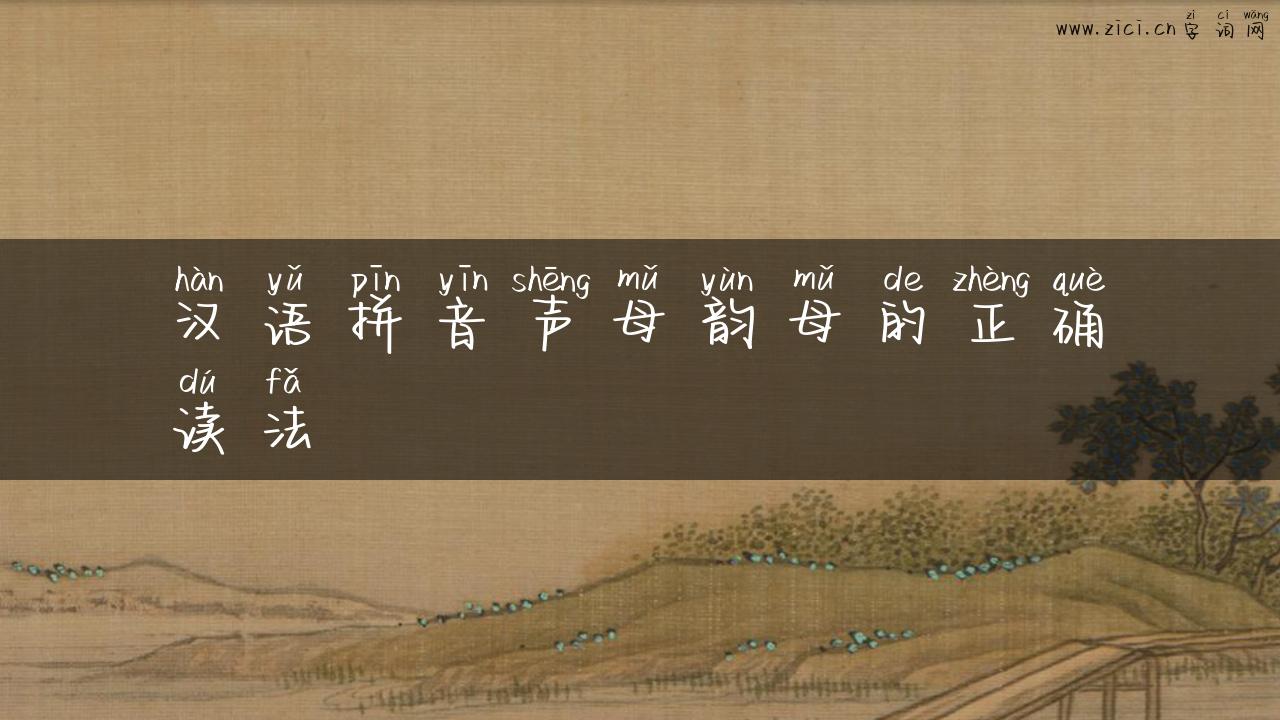 zì cí wǎng
www.zici.cn 字 词 网
hàn yǔ pīn yīn shēng mǔ yùn mǔ de zhèng què
汉 语 拼 音 声 母 韵 母 的 正 确
dú fǎ
读 法